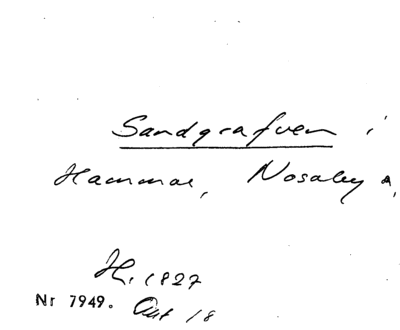 Sandgrafven i
Hammar, Nosaby s,
H. 1827
Nr 7949. Ant 18